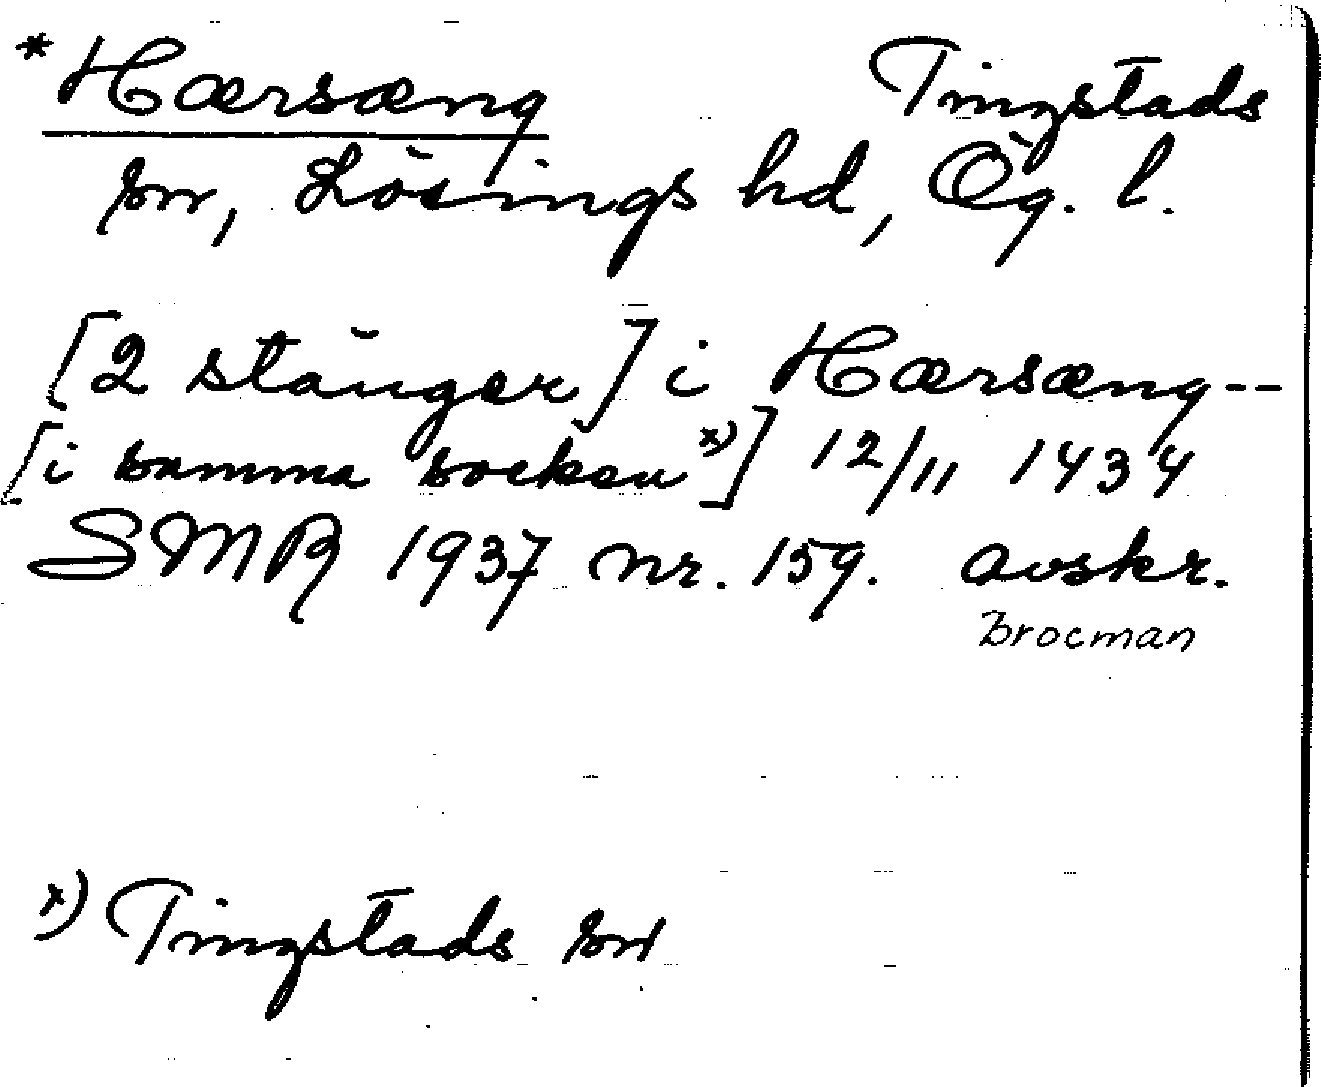 *Hærsæng Tingstads
sn, Lösings hd, Ög. l.
[2 stänger] i Hærsæng--
[i samma socken x)] 12/11 1434
SMR 1937 nr. 159. avskr.
Brocman
x) Tingstads sn